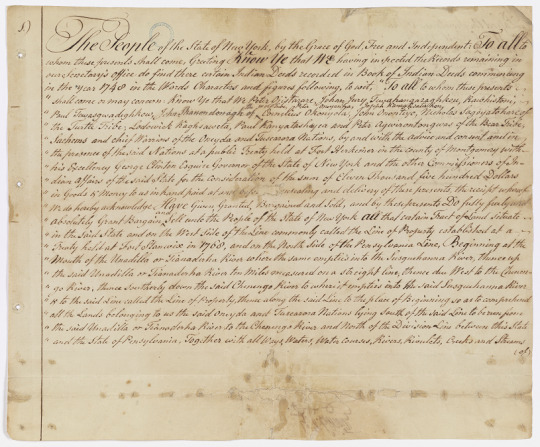 The People of the State of New York, by the Grace of God, Free and Independent: To all to
whom these presents shall come, Greeting Know Ye that We having inspected the Records remaining in
our Secretary's Office do find there certain Indian Deeds recorded in Book of Indian Deeds commencing
in the Year 1748 in the Words Characters and figures following, to wit, "To all to whom these presents
" shall come or may concern. Know Ye that We
Paul
of
the Turtle Tribe, Lodowick of the Bear Tribe,
" Sachems and chief Warriors of the Oneyda and Tuscarora Nations, by and with the advice and consent and in
" the presence of the said Nations at a public Treaty held at Fort Herkimer in the county of Montgomery with
" his Excellency George Clinton Esquire Governor of the State of New York and the other Commissioners of In-
" dian Affairs of the said State for the consideration of the sum of Eleven Thousand and five hundred Dollars
" in Goods & Money to us in hand paid at and before the ensealing and delivery of these presents, the receipt whereof
" We do hereby acknowledge, Have Given Granted, Bargained and Sold, and by these presents Do fully freely and
" absolutely Grant Bargain and Sell unto the People of the State of New York all that certain Tract of Land Situate
" in the Said State and on the West Side of the Line commonly called the Line of Property established at a
" Treaty held at Fort Stanwix in 1768, and on the North Side of the Pensylvania Line, Beginning at the
" Mouth of the Unadilla or Tianadaha River where the same empties into the Susquehanna River, thence up
" the said Unadilla or Tianadaha River ten Miles measured on a straight line, thence due West to the Chenen-
" go River, thence Southerly down the said Chenengo River to where it empties into the said Susquehanna River
" & to the said Line called the Line of Property, thence along the said Line to the place of Beginning so as to comprehend
" all the Lands belonging to us the said Oneyda and Tuscarora Nations lying South of the said Line to be run from
" the said Unadilla or Tianadaha River to the Chenengo River and North of the Division Line between this State
" and the State of Pensylvania. Together with all Ways, Waters, Water courses, Rivers, Rivulets, Creeks and Streams
(of